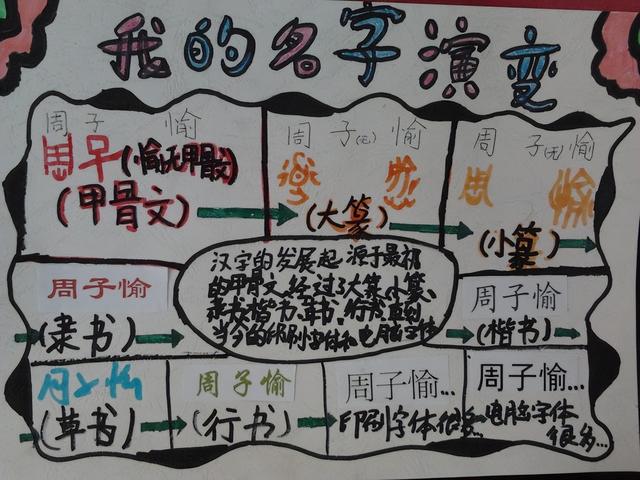 我的名字演变
周 子 愉
(愉无甲骨文)
(甲骨文)
周 子(无) 愉
(大篆)
周 子(无) 愉
(小篆)
汉字的发展起源于最初
的甲骨文,经过了大篆、小篆、
隶书、楷书、草书、行书,直到
当今的印刷字体和电脑字体
周子愉
(隶书)
周子愉
(楷书)
周子愉
(草书)
周子愉
(行书)
周子愉...
印刷字体很多...
周子愉...
电脑字体
很多...